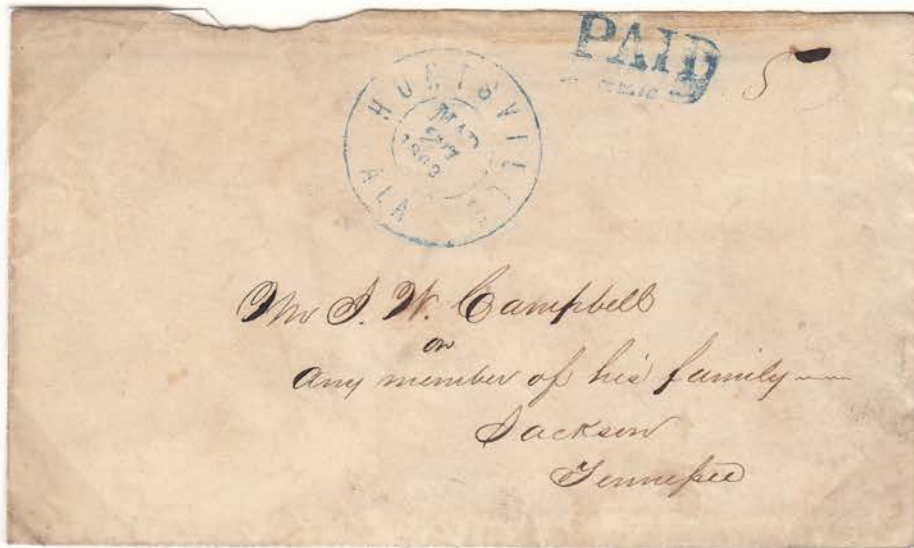 HUNTSVILLE
ALA
MAR
27
PAID
5
Mr J. W. Campbell
or
Any member of his family
Jackson
Tennessee